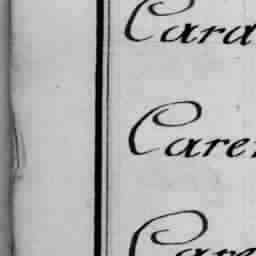 Cara
Care
Care